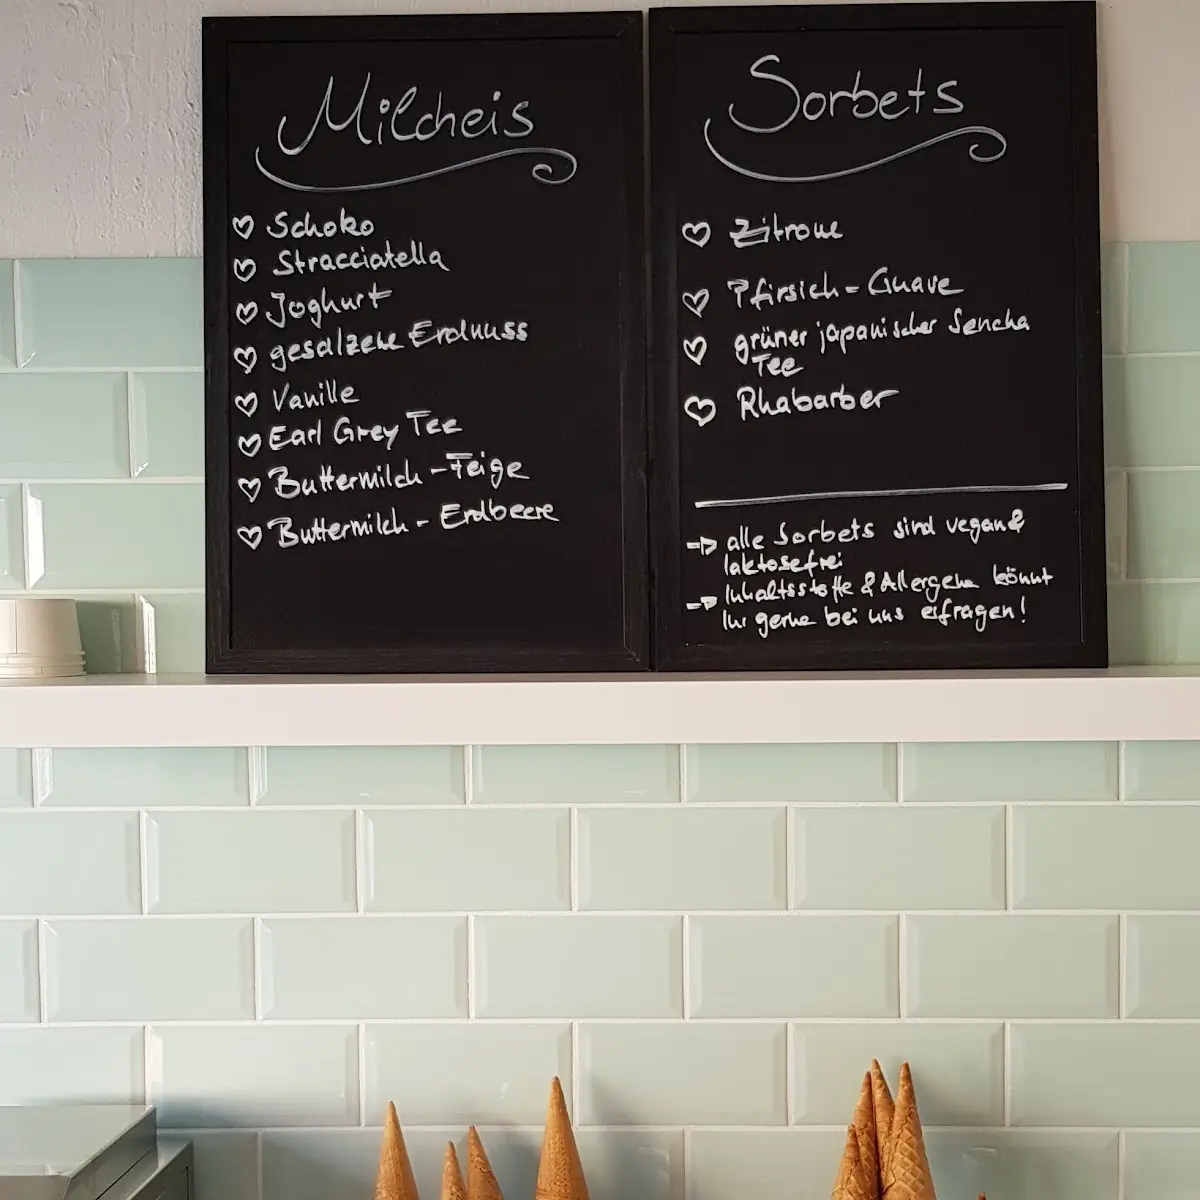 Milcheis
Schoko
Stracciatella
Joghurt
gesalzene Erdnuss
Vanille
Earl Grey Tee
Buttermilch - Feige
Buttermilch - Erdbeere
Sorbets
Zitrone
Pfirsich - Guave
grüner japanischer Sencha
Tee
Rhabarber
alle Sorbets sind vegan &
laktosefrei
Inhaltsstoffe & Allergene könnt
Ihr gerne bei uns erfragen!